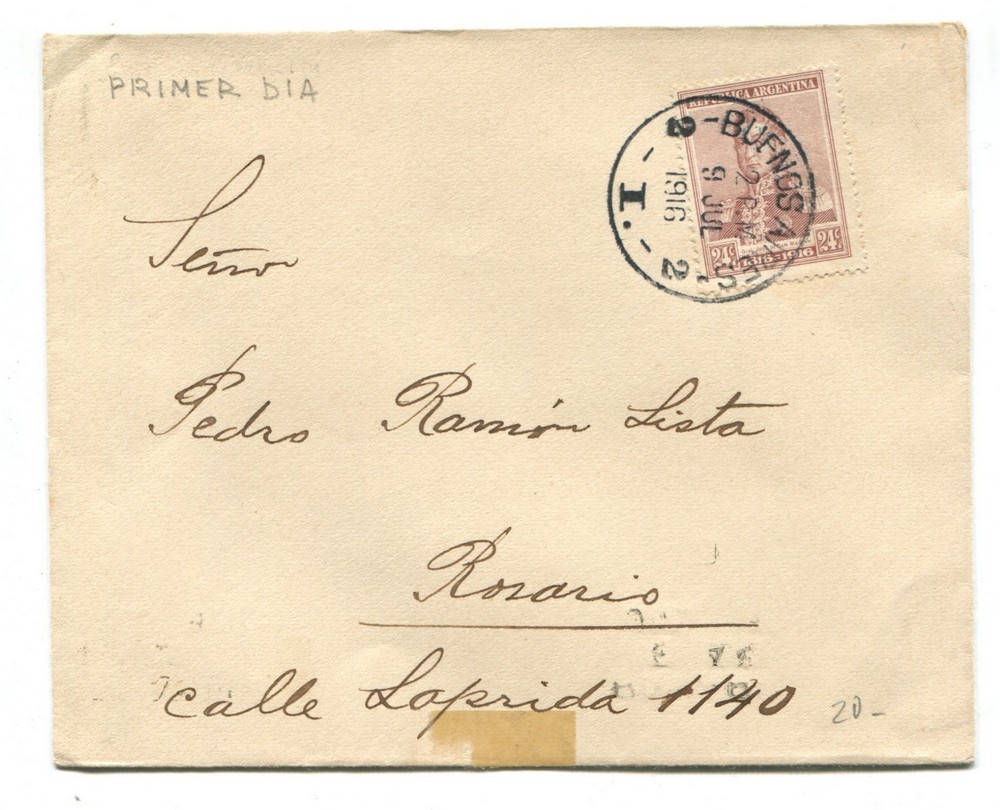 PRIMER DIA
REPUBLICA ARGENTINA
24c 24c
1816-1916
BUENOS AIRES
2 PM
9 JUL
1916
2 - I. - 2
Señor
Pedro Ramón Lista
Rosario
calle Laprida 1140
20-